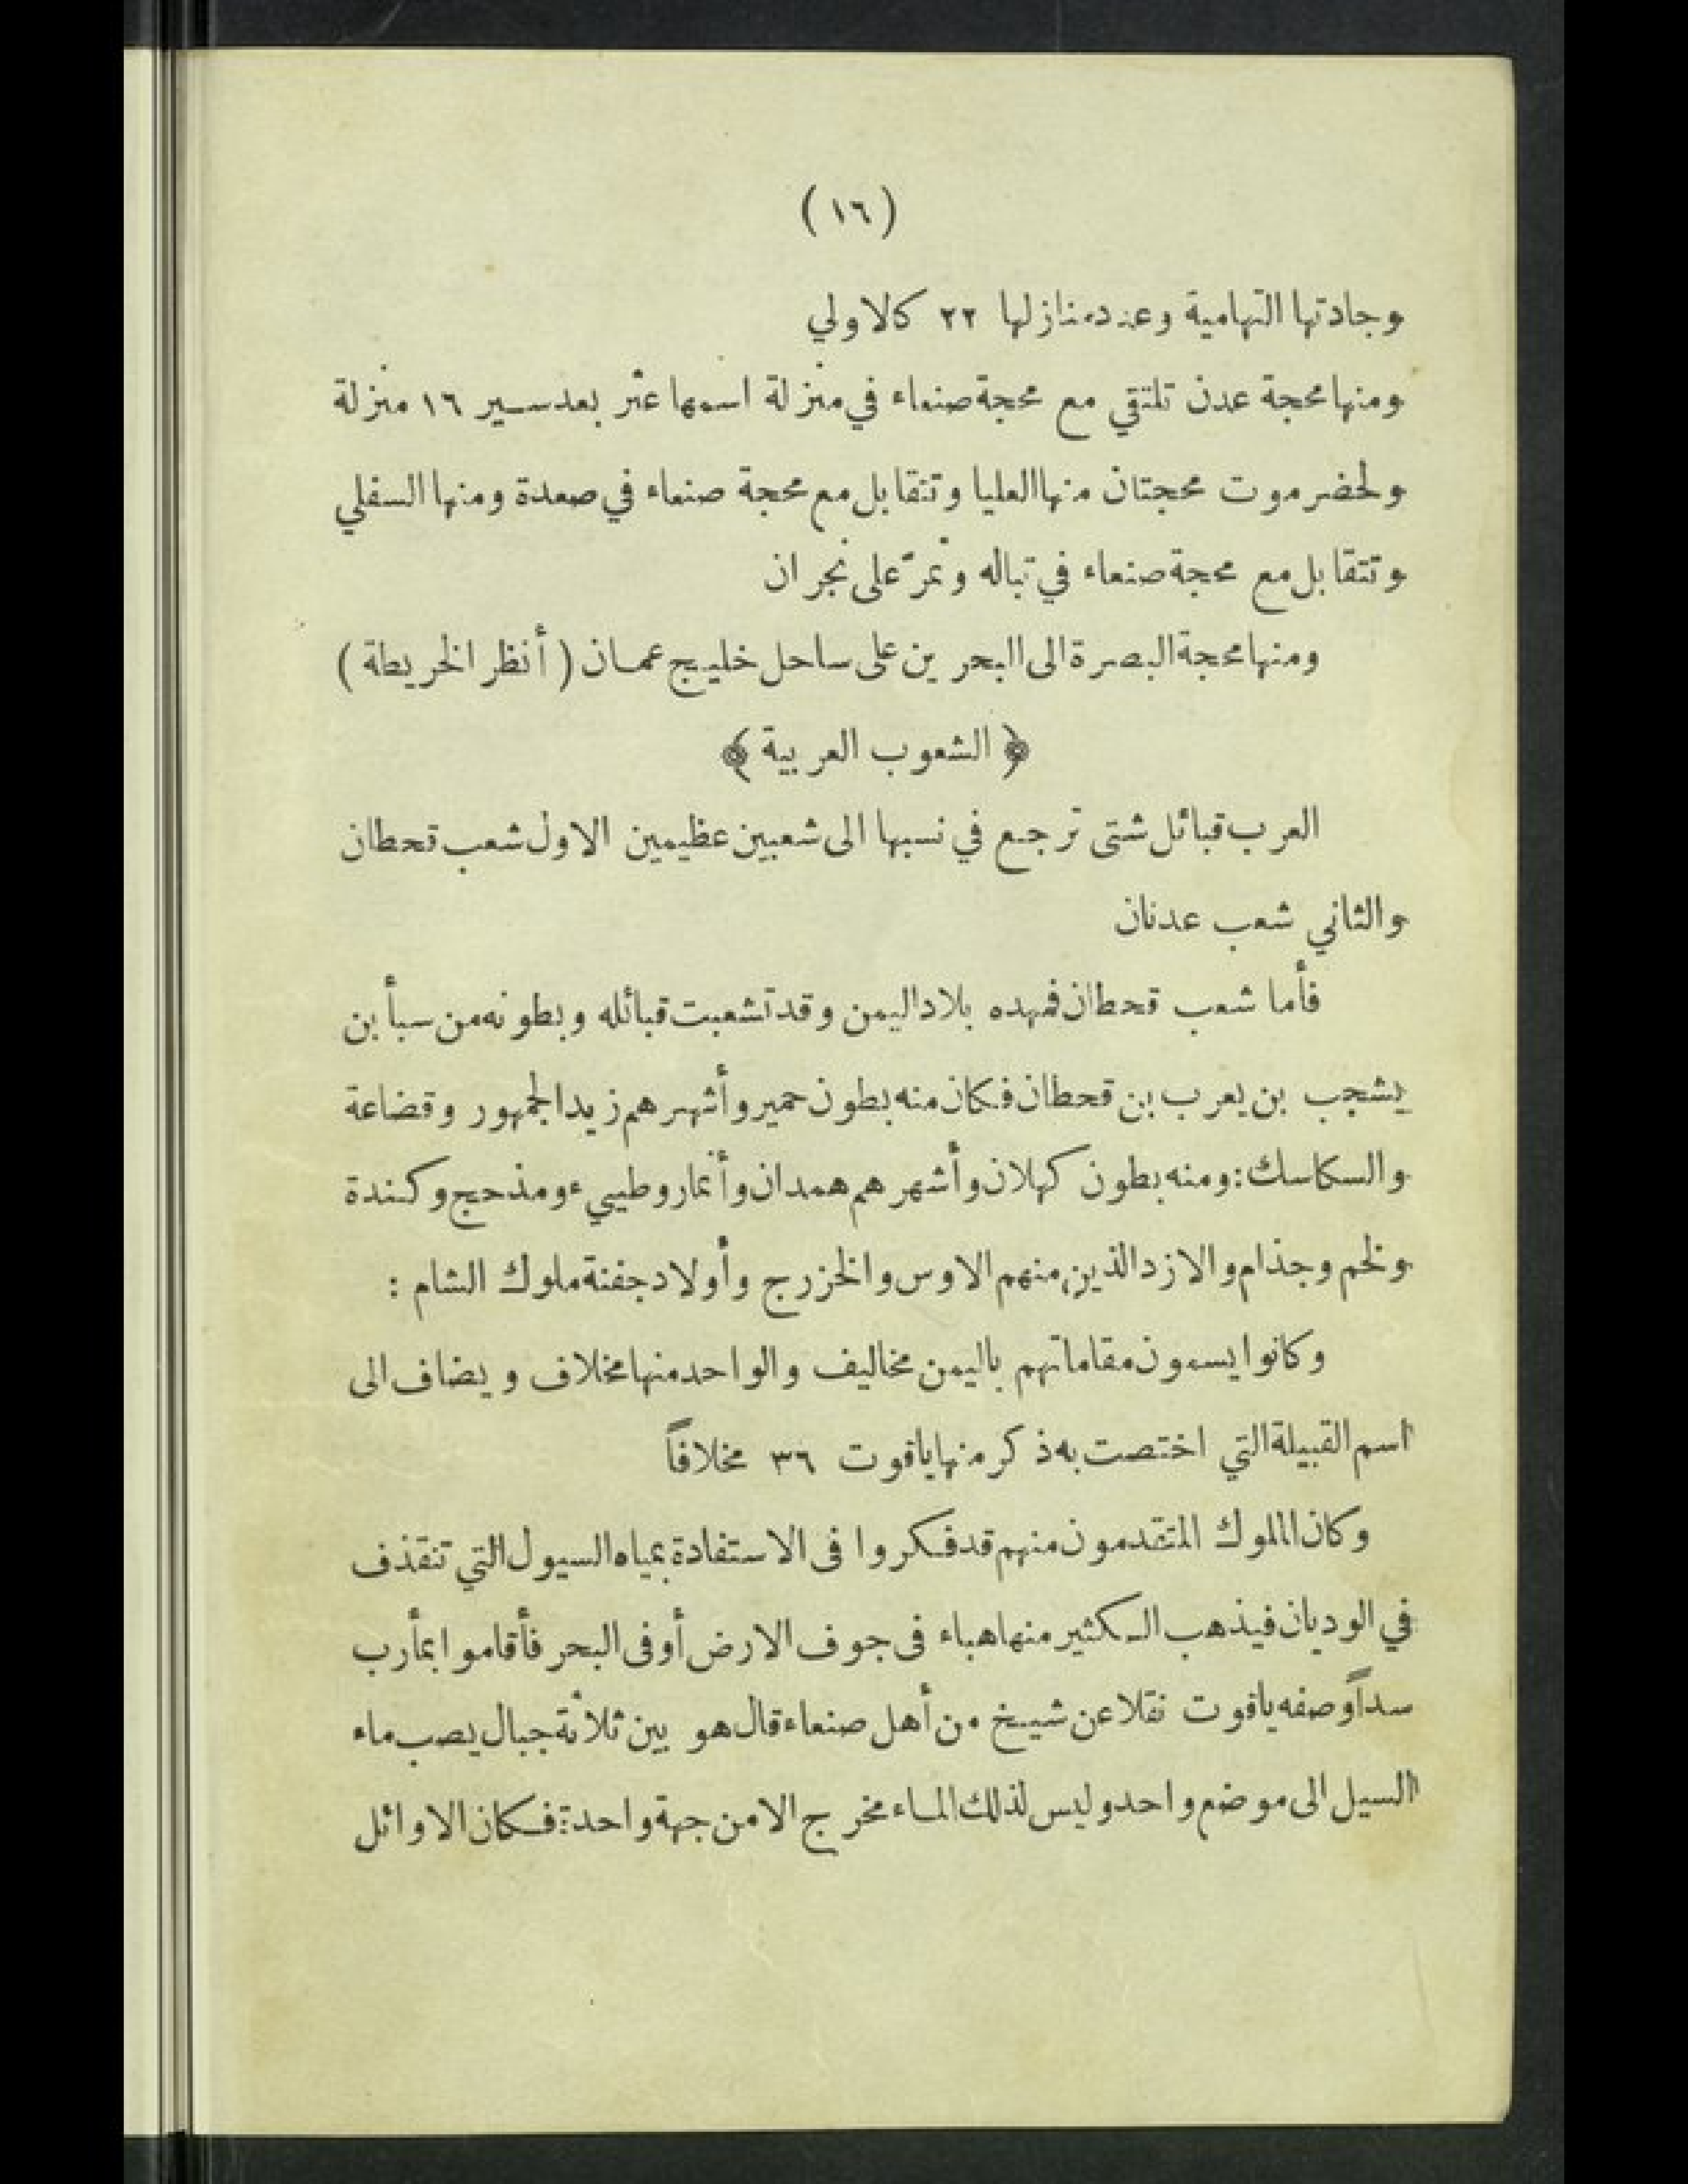 (١٦)
وجادتها التهامية وعدد منازلها ٢٢ كالاولي
ومنها محجة عدن تلتقي مع محجة صنعاء في منزلة اسمها عثر بعد سير ١٦ منزلة
ولحضرموت محجتان منها العليا وتتقابل مع محجة صنعاء في صعدة ومنها السفلي
وتتقابل مع محجة صنعاء في تباله وتمرّ على نجران
ومنها محجة البصرة الى البحرين على ساحل خليج عمان (أنظر الخريطة)
﴿ الشعوب العربية ﴾
العرب قبائل شتى ترجع في نسبها الى شعبين عظيمين الاول شعب قحطان
والثاني شعب عدنان
فأما شعب قحطان فمهده بلاد اليمن وقد تشعبت قبائله وبطونه من سبأ بن
يشجب بن يعرب بن قحطان فكان منه بطون حمير وأشهرهم زيد الجمهور وقضاعة
والسكاسك: ومنه بطون كهلان وأشهرهم همدان وأنمار وطييء ومذحج وكندة
ولخم وجذام والازد الذين منهم الاوس والخزرج وأولاد جفنة ملوك الشام :
وكانوا يسمون مقاماتهم باليمن مخاليف والواحد منها مخلاف ويضاف الى
اسم القبيلة التي اختصت به ذكر منها ياقوت ٣٦ مخلافاً
وكان الملوك المتقدمون منهم قد فكروا فى الاستفادة بمياه السيول التي تنقذف
في الوديان فيذهب الكثير منها هباء فى جوف الارض أو فى البحر فأقاموا بمأرب
سداً وصفه ياقوت نقلا عن شيخ من أهل صنعاء قال هو بين ثلاثة جبال يصب ماء
السيل الى موضع واحد وليس لذلك الماء مخرج الا من جهة واحدة: فكان الاوائل